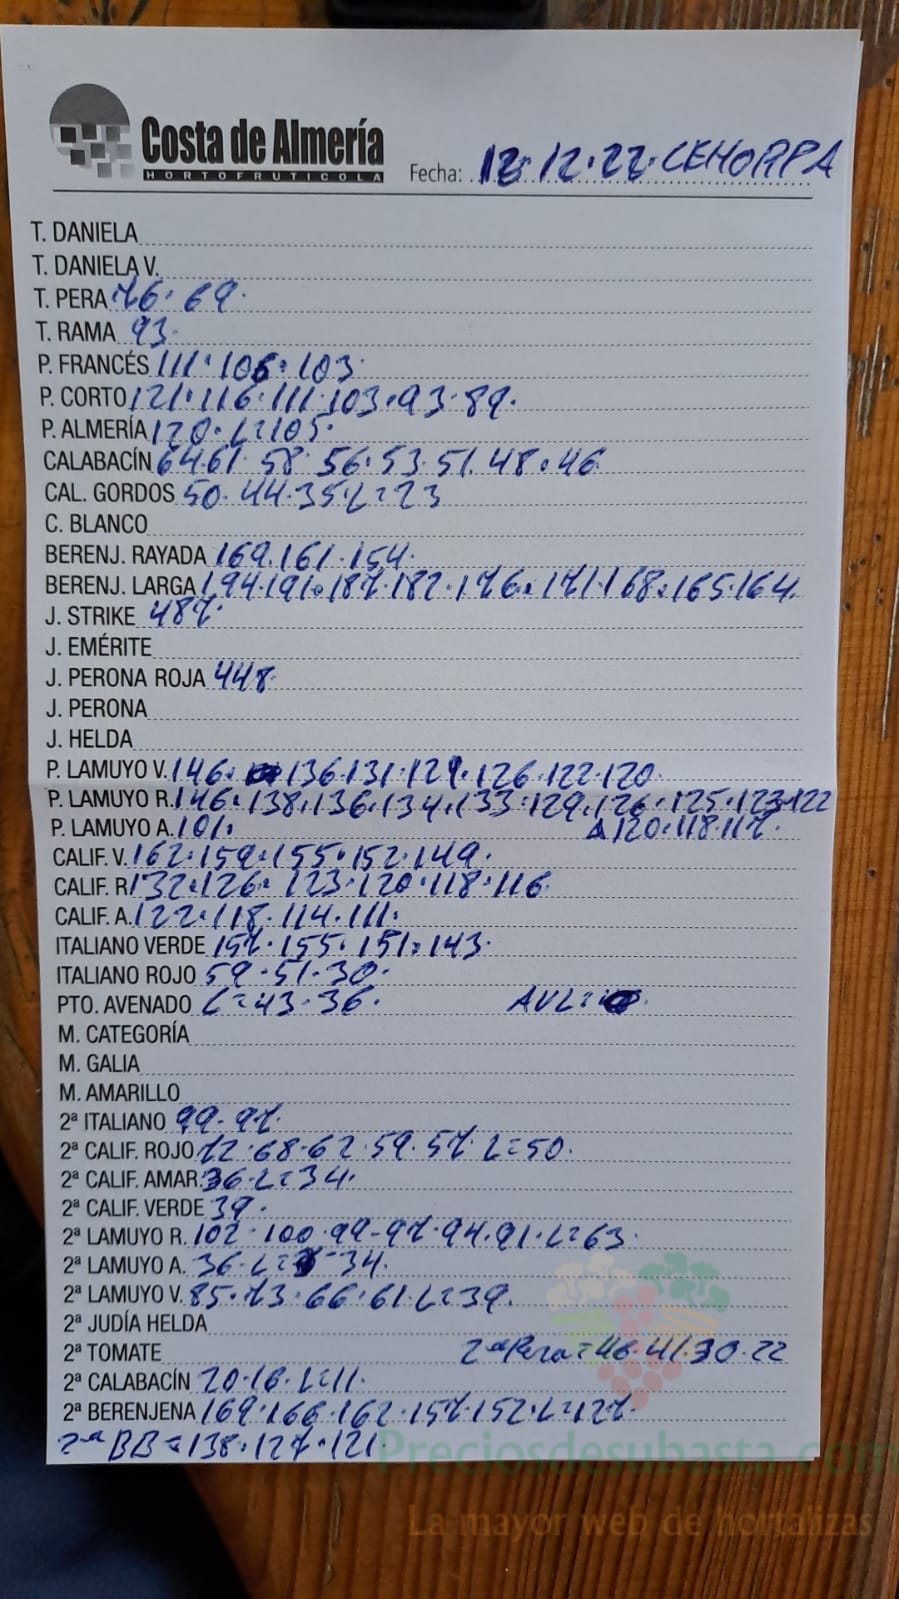 Costa de Almería
HORTOFRUTICOLA
Fecha: 12·12·22·CEHORPA
T. DANIELA
T. DANIELA V.
T. PERA 76·69·
T. RAMA 93·
P. FRANCÉS 111·106·103·
P. CORTO 121·116·111·103·93·89·
P. ALMERÍA 120·L=105·
CALABACÍN 64·61·58·56·53·51·48·46
CAL. GORDOS 50·44·35·L=23
C. BLANCO
BERENJ. RAYADA 169·161·154·
BERENJ. LARGA 194·191·187·182·176·171·168·165·164·
J. STRIKE 487·
J. EMÉRITE
J. PERONA ROJA 448·
J. PERONA
J. HELDA
P. LAMUYO V. 146·136·131·129·126·122·120·
P. LAMUYO R. 146·138·136·134·133·129·126·125·123·122
P. LAMUYO A. 101· Δ120·118·117·
CALIF. V. 162·159·155·152·149·
CALIF. R 132·126·123·120·118·116
CALIF. A. 122·118·114·111·
ITALIANO VERDE 157·155·151·143·
ITALIANO ROJO 59·51·30·
PTO. AVENADO L=43·36· AVL=
M. CATEGORÍA
M. GALIA
M. AMARILLO
2ª ITALIANO 99·97·
2ª CALIF. ROJO 72·68·62·59·57·L=50·
2ª CALIF. AMAR. 36·L=34·
2ª CALIF. VERDE 39·
2ª LAMUYO R. 102·100·99·97·94·91·L=63·
2ª LAMUYO A. 36·L=34·
2ª LAMUYO V. 85·73·66·61·L=39·
2ª JUDÍA HELDA
2ª TOMATE 2ª Pera=46·41·30·22
2ª CALABACÍN 20·16·L=11·
2ª BERENJENA 169·166·162·157·152·L=127·
2ª BB=138·127·121·
Preciosdesubasta.com
La mayor web de hortalizas